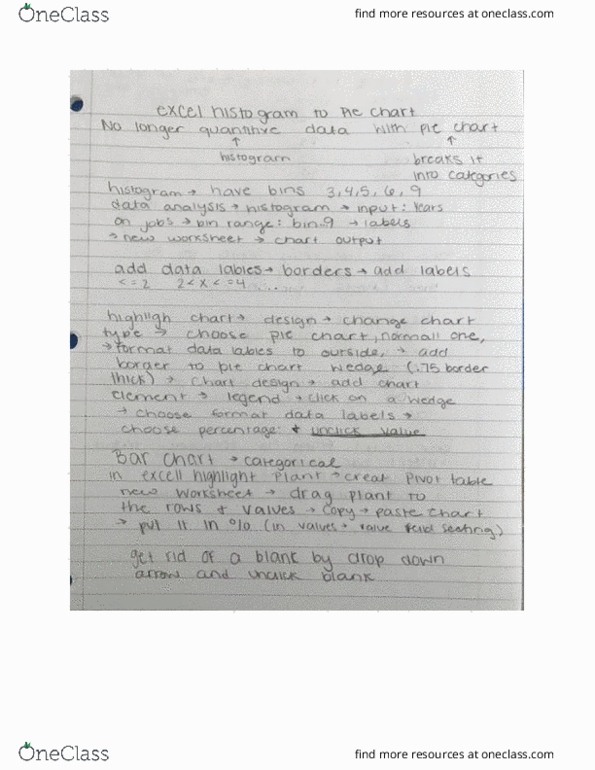 OneClass
find more resources at oneclass.com
excel histogram to pie chart
No longer quantitive data with pie chart
↑ ↑
histogram breaks it
into categories
histogram → have bins 3,4,5,6,9
data analysis → histogram → input: Years
on jobs → bin range: bin.9 → labels
→ new worksheet → chart output
add data lables → borders → add labels
<=2 2<x<=4 ....
highligh chart → design → change chart
type → choose pie chart, normall one,
→ format data lables to ourside, → add
border to pie chart wedge (.75 border
thick) → chart design → add chart
element → legend → click on a wedge
→ choose format data labels →
choose percentage: + unclick value
Bar Chart → categorical
in excell highlight plant → creat pivot table
new worksheet → drag plant to
the rows + values → copy → paste chart
→ put it in % (in values → value feild seeting)
get rid of a blank by drop down
arrow and unclick blank
OneClass
find more resources at oneclass.com